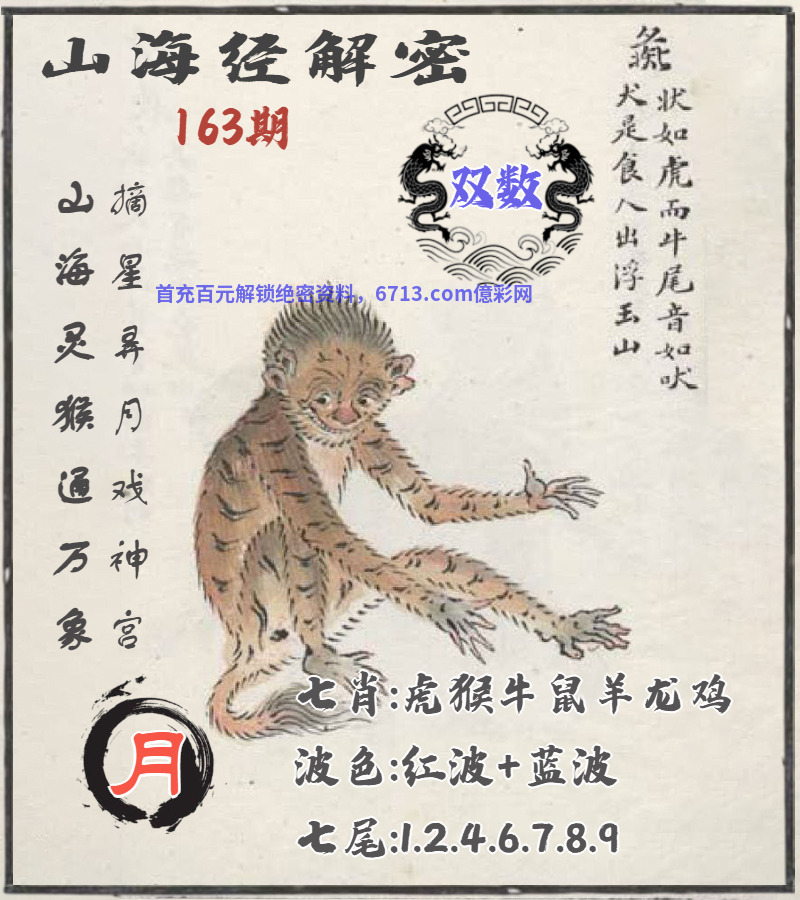 山海经解密
163期
双数
彘
状如虎而牛尾音如吠
犬是食人出浮玉山
首充百元解锁绝密资料，6713.com億彩网
山海灵猴通万象
摘星弄月戏神宫
七肖:虎猴牛鼠羊龙鸡
波色:红波+蓝波
七尾:1.2.4.6.7.8.9
月